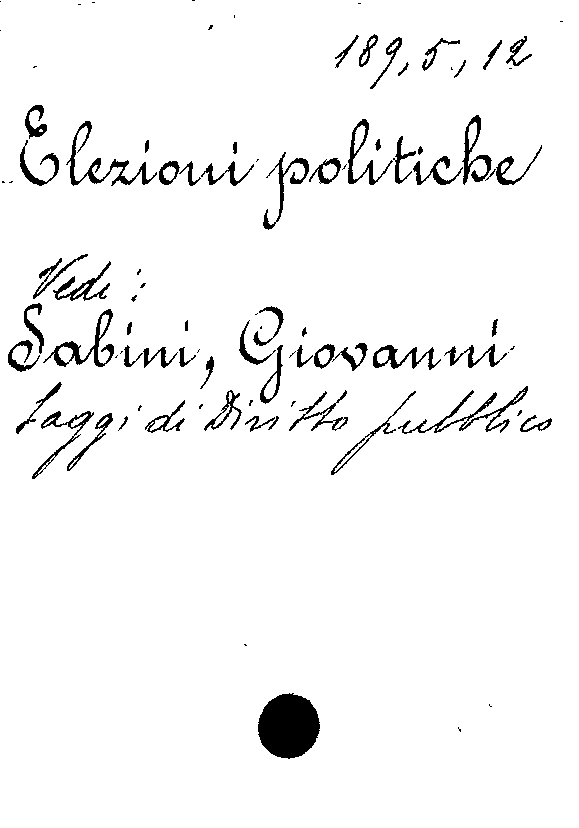 189, 5, 12
Elezioni politiche
Vedi:
Sabini, Giovanni
Saggi di Diritto pubblico